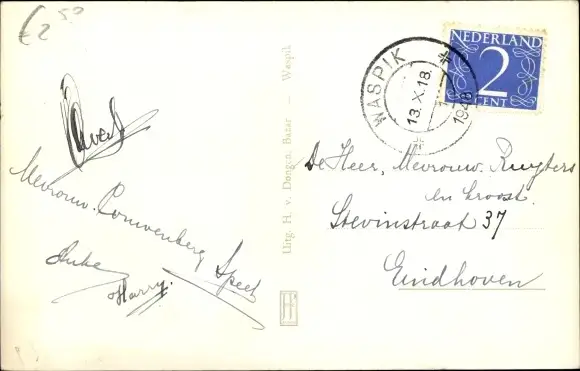 €2 50
Mevrouw. Couwenberg Speet
Anke
Harry.
Uitg. H. v. Dongen, Bazar — Waspik
WASPIK
13.X.18.
1948
NEDERLAND
2
CENT
De Heer, Mevrouw. Ruyters
en kroost.
Stevinstraat 37
Eindhoven